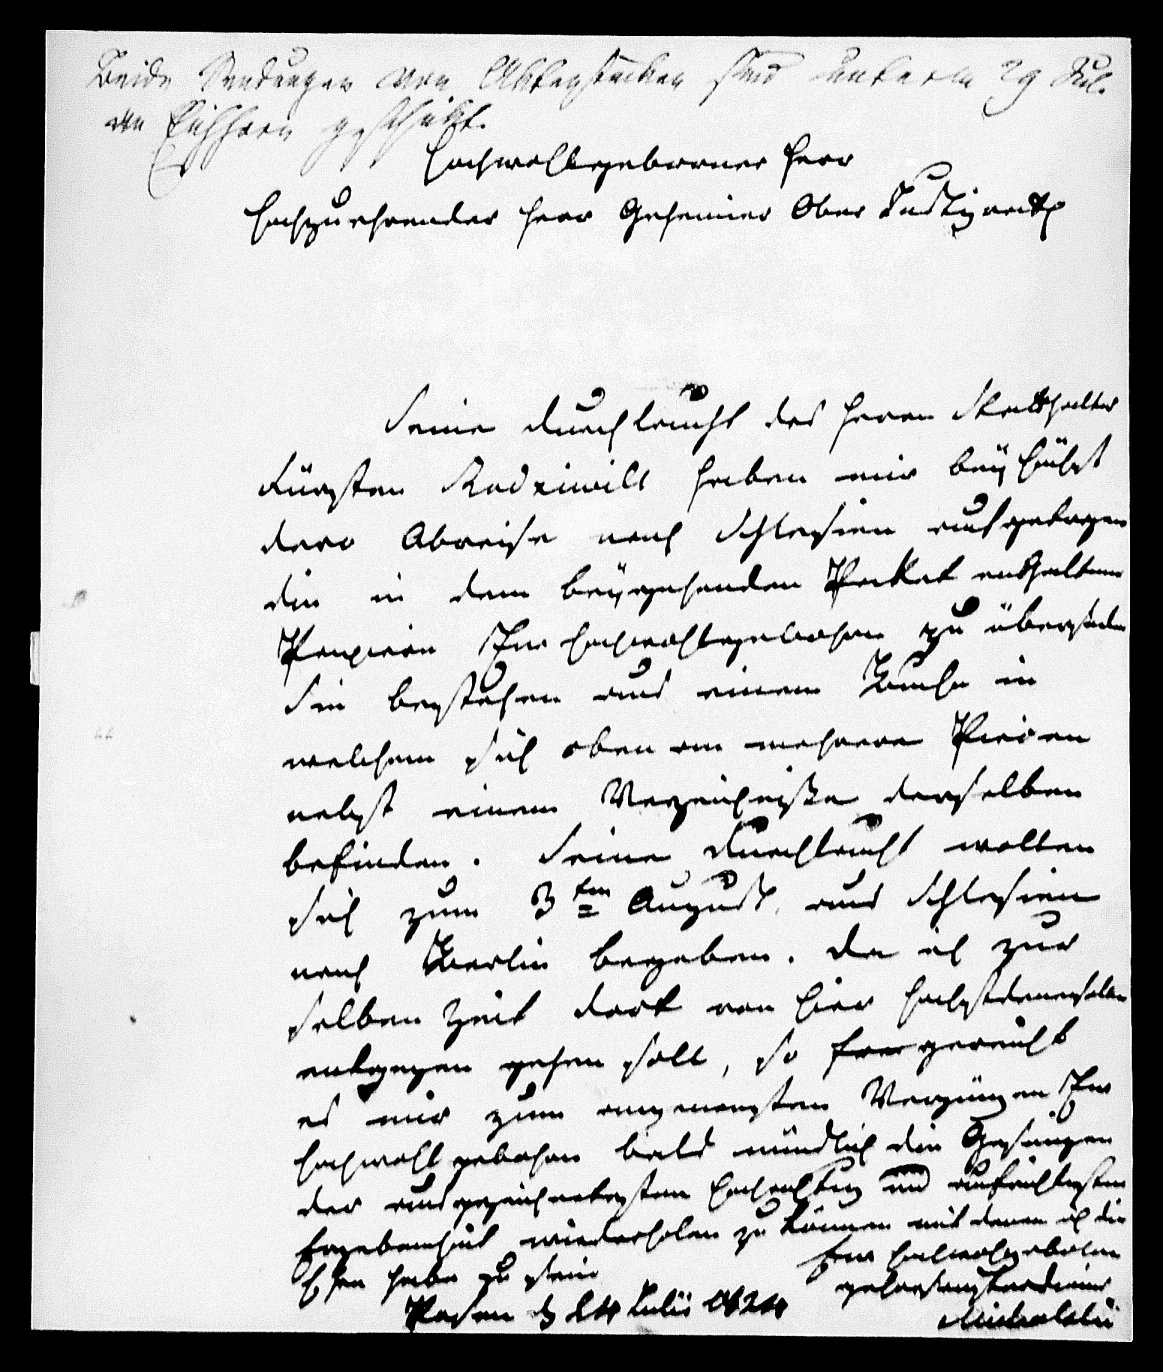 Beide Sendungen von Aktenstücken sind unterm 29 Jul.
an Eichhorn geschickt.
Hochwohlgeborner Herr
Hochzuehrender Herr Geheimer Ober Justizrath
Seine Durchlaucht des Herrn Statthalter
Fürsten Radziwill haben mir bey Höchst
dero Abreise nach Schlesien aufgetragen
die in dem beygehenden Packet enthaltenen
Papiere Ihnen Hochwohlgebohren zu übersenden
Sie bestehen aus einem Buche in
welchem sich oben an mehrere Piecen
nebst einem Verzeichnisse derselben
befinden. Seine Durchlaucht wollten
sich zum 3ten August aus Schlesien
nach Berlin begeben. Da ich zur
selben Zeit dort von hier Höchstdenenselben
entgegen gehen soll, so gereicht
es mir zum angenehmsten Vergnügen Ew
Hochwohlgebohren bald mündlich die Gesinnungen
der ausgezeichnetesten Hochachtung und aufrichtigsten
Ergebenheit wiederholen zu können mit denen ich die
Ehre habe zu sein
Ew Hochwohlgebohren
gehorsamster Diener
Posen d 24 Julii 1824